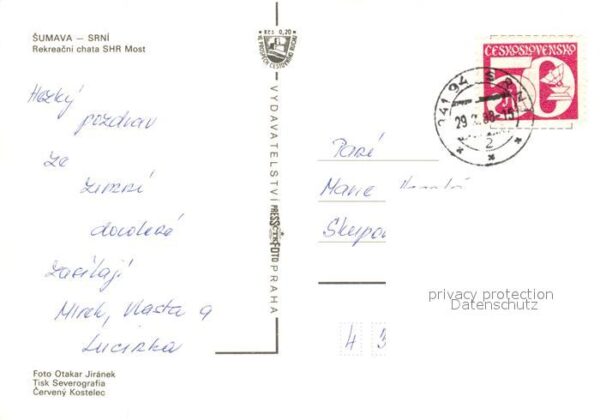 ŠUMAVA — SRNÍ
Rekreační chata SHR Most
Hezký
pozdrav
ze
zimní
dovolené
zasílají
Mirek, Vlasta a
Lucinka
Foto Otakar Jiránek
Tisk Severografia
Červený Kostelec
Kčs 0,20
VYDAVATELSTVÍ PRESSFOTO PRAHA
ČESKOSLOVENSKO
50
341 94 SRNÍ
2
Paní
Marie
privacy protection
Datenschutz
4 3